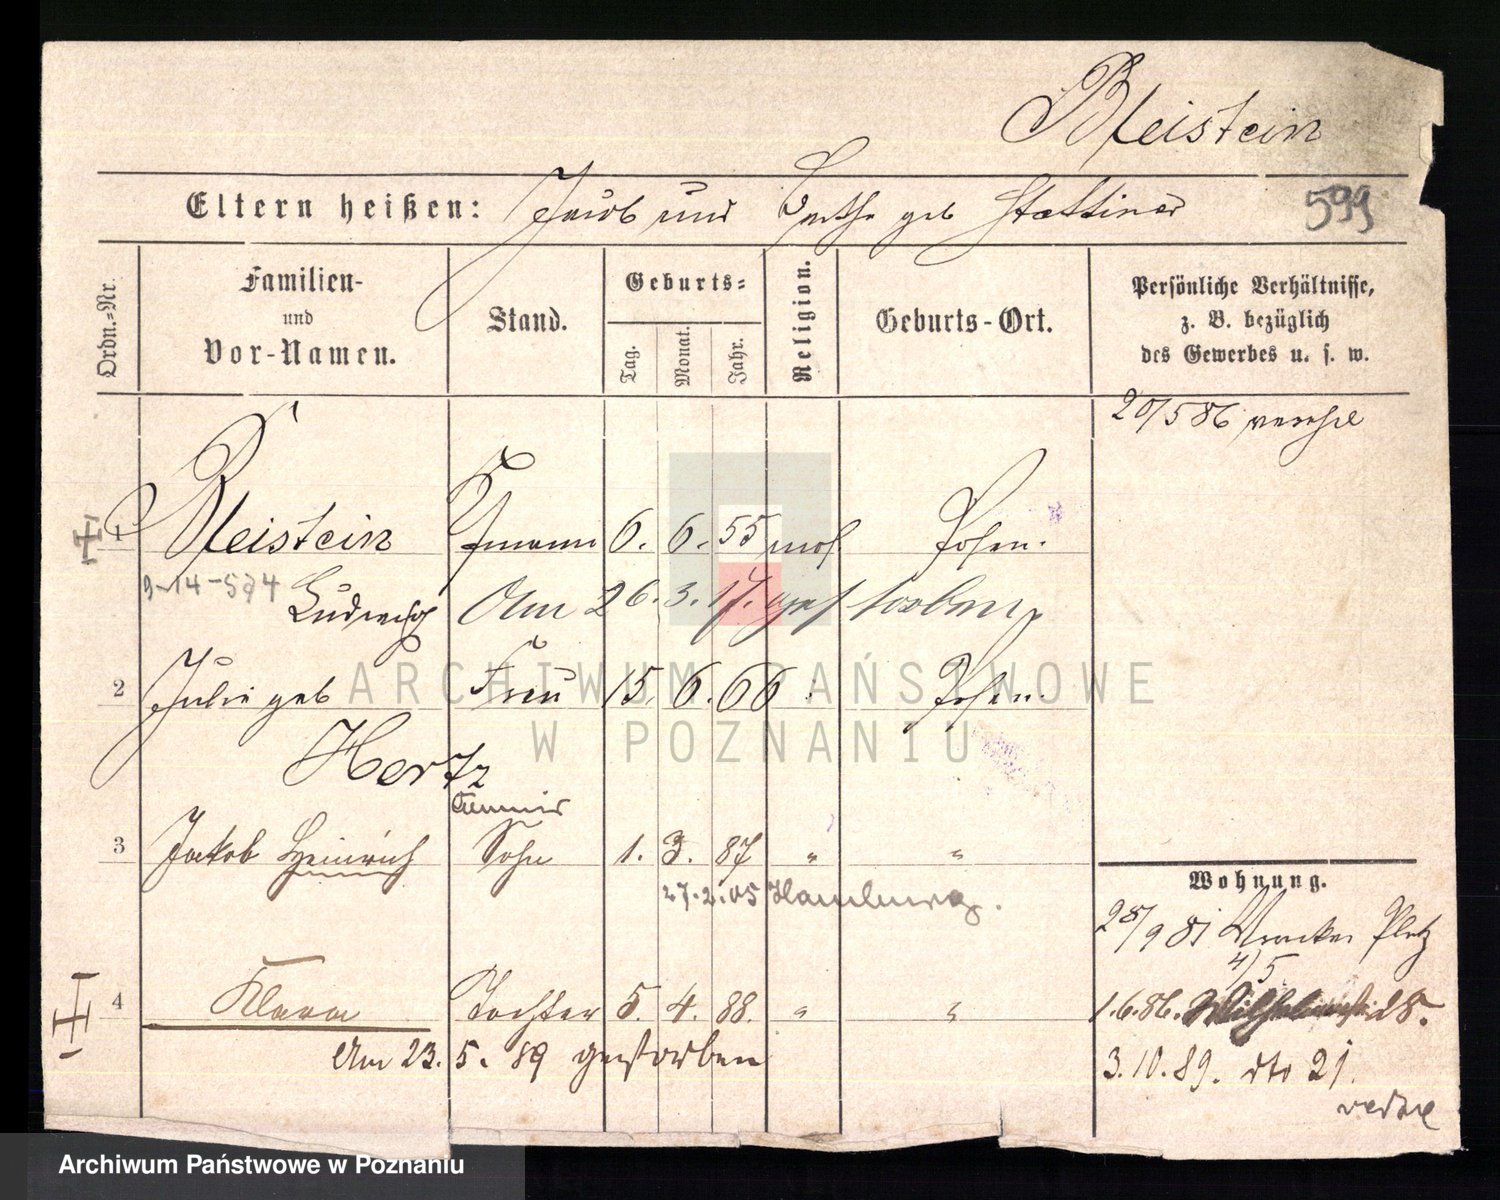 Bleistein
Eltern heißen: Jacob und Berthe geb Stettiner
599
Ordn.-Nr.
Familien-
und
Vor-Namen.
Stand.
Geburts-
Tag. Monat. Jahr.
Religion.
Geburts-Ort.
Persönliche Verhältnisse,
z. B. bezüglich
des Gewerbes u. s. w.
20/5 86
1 Bleistein Kfmann 6. 6. 55 mos Posen.
Ludwig Am 26. 3. 17. gestorben
2 Julie geb Frau 15. 6. 66 Posen.
Hertz
3 Jakob Heinrich Sohn 1. 3. 87 " "
27.2.05 Hamburg.
Wohnung.
28/9 81 Platz
4/5
4 Klara Tochter 5. 4. 88. " "
1.6.86. 28.
Am 23. 5. 89 gestorben
3.10.89. dto 21.
ARCHIWUM PAŃSTWOWE
W POZNANIU
Archiwum Państwowe w Poznaniu